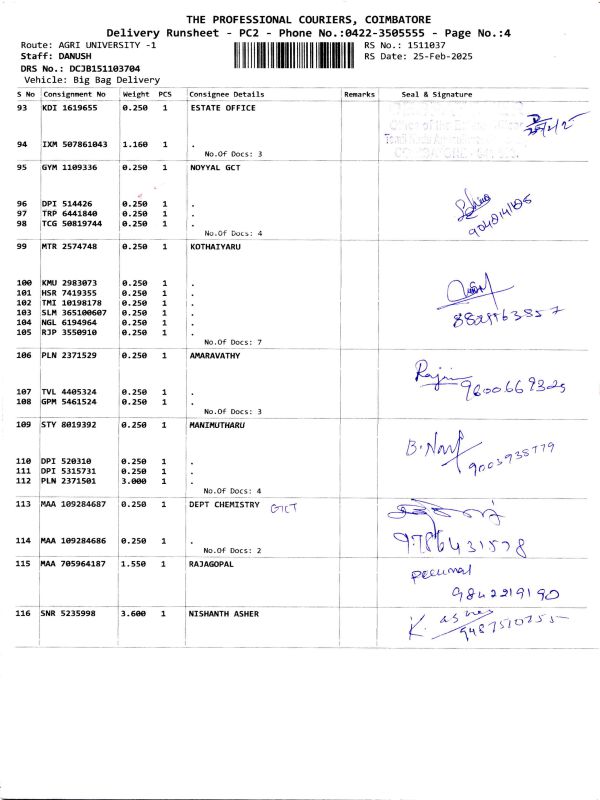 THE PROFESSIONAL COURIERS, COIMBATORE
Delivery Runsheet - PC2 - Phone No.:0422-3505555 - Page No.:4
Route: AGRI UNIVERSITY -1 RS No.: 1511037
Staff: DANUSH RS Date: 25-Feb-2025
DRS No.: DCJB151103704
Vehicle: Big Bag Delivery
S No Consignment No Weight PCS Consignee Details Remarks Seal & Signature
93 KDI 1619655 0.250 1 ESTATE OFFICE
94 IXM 507861043 1.160 1 .
No.Of Docs: 3
95 GYM 1109336 0.250 1 NOYYAL GCT
96 DPI 514426 0.250 1 .
97 TRP 6441840 0.250 1 .
98 TCG 50819744 0.250 1 .
No.Of Docs: 4
99 MTR 2574748 0.250 1 KOTHAIYARU
100 KMU 2983073 0.250 1 .
101 HSR 7419355 0.250 1 .
102 TMI 10198178 0.250 1 .
103 SLM 365100607 0.250 1 .
104 NGL 6194964 0.250 1 .
105 RJP 3550910 0.250 1 .
No.Of Docs: 7
106 PLN 2371529 0.250 1 AMARAVATHY
107 TVL 4405324 0.250 1 .
108 GPM 5461524 0.250 1 .
No.Of Docs: 3
109 STY 8019392 0.250 1 MANIMUTHARU
110 DPI 520310 0.250 1 .
111 DPI 5315731 0.250 1 .
112 PLN 2371501 3.000 1 .
No.Of Docs: 4
9003935779
113 MAA 109284687 0.250 1 DEPT CHEMISTRY GCT
114 MAA 109284686 0.250 1 .
No.Of Docs: 2
9786431578
115 MAA 705964187 1.550 1 RAJAGOPAL
perumal
9842219190
116 SNR 5235998 3.600 1 NISHANTH ASHER
K. asher
9487510255